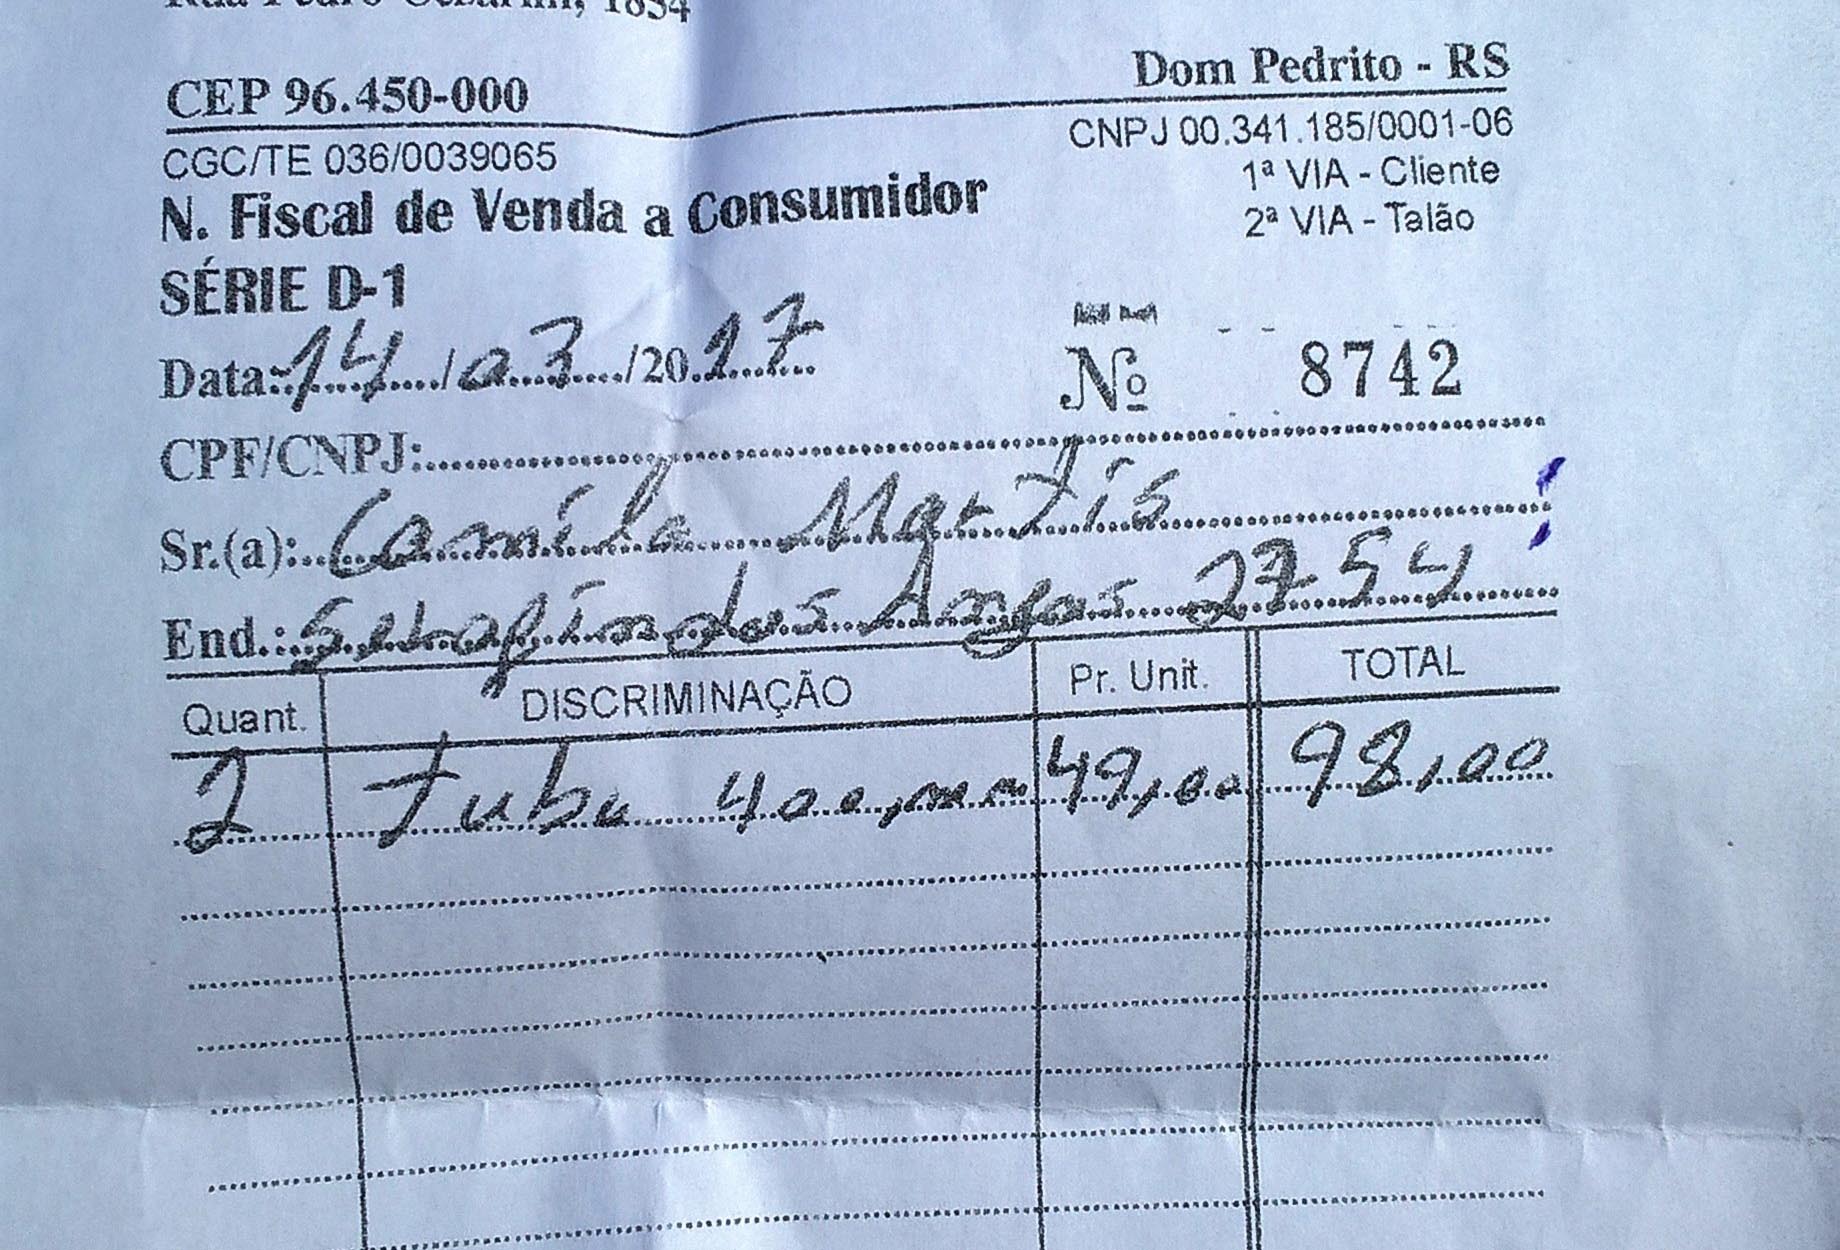 1834
CEP 96.450-000 Dom Pedrito - RS
CGC/TE 036/0039065 CNPJ 00.341.185/0001-06
1ª VIA - Cliente
N. Fiscal de Venda a Consumidor
2ª VIA - Talão
SÉRIE D-1
Data: 14/03/2017 Nº 8742
CPF/CNPJ:
Sr.(a): Camila
End.: dos Anjos 2754
Quant. DISCRIMINAÇÃO Pr. Unit. TOTAL
2 tubo 400,mm 49,00 98,00